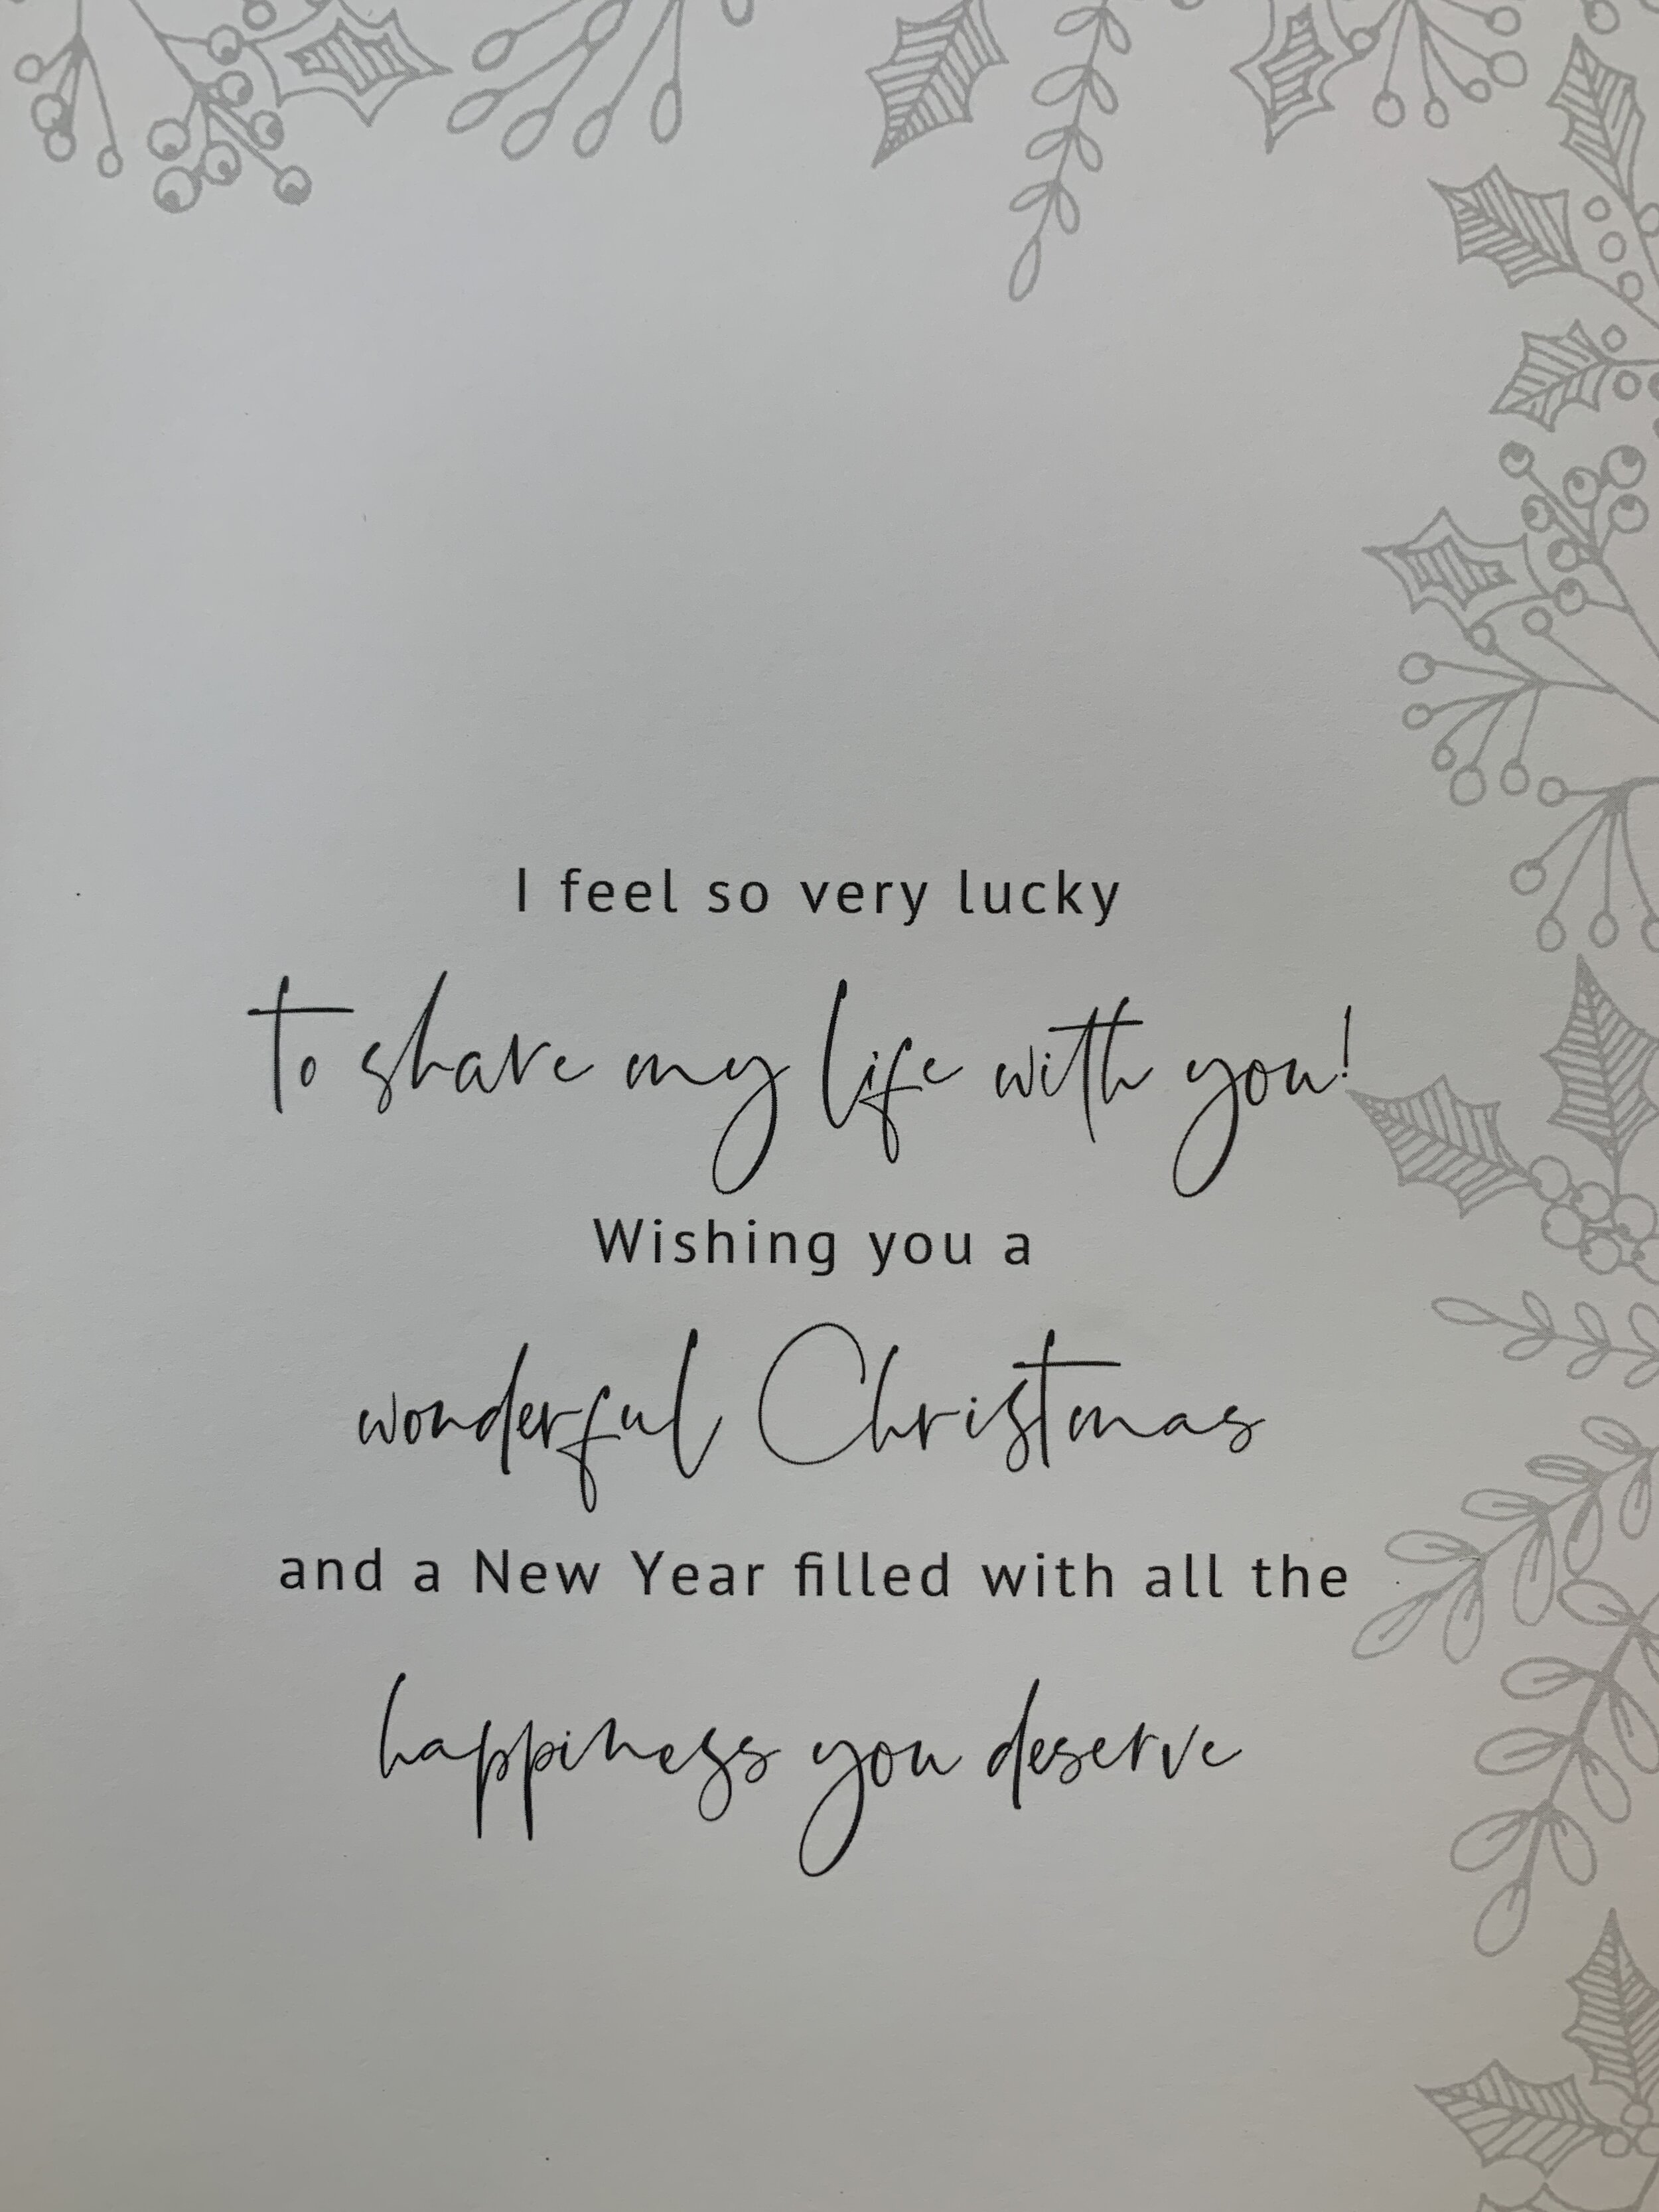 I feel so very lucky
to share my life with you!
Wishing you a
wonderful Christmas
and a New Year filled with all the
happiness you deserve